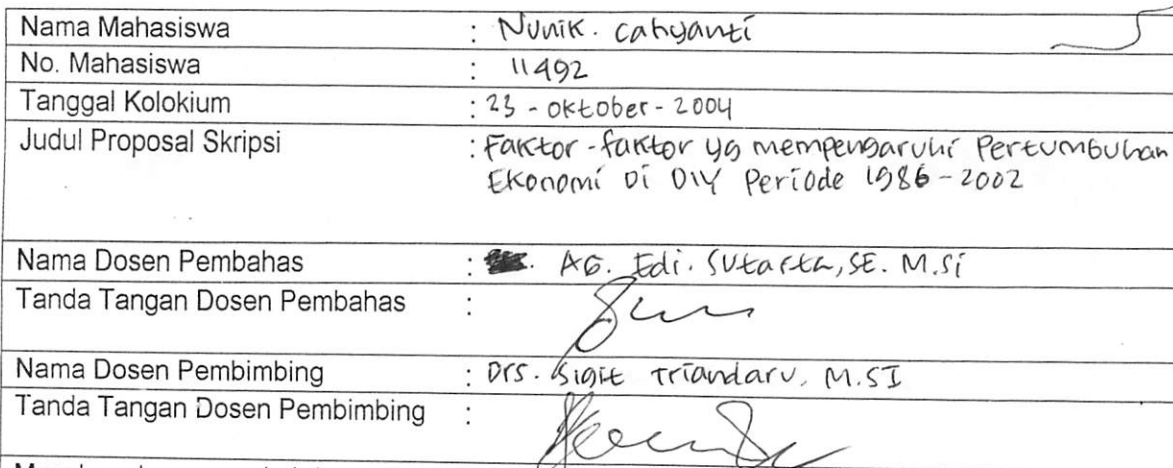 Nama Mahasiswa : Nunik. Cahyanti
No. Mahasiswa : 11492
Tanggal Kolokium : 23 - Oktober - 2004
Judul Proposal Skripsi : Faktor - faktor yg mempengaruhi Pertumbuhan
Ekonomi Di DIY Periode 1986 - 2002
Nama Dosen Pembahas : AG. Edi. Sutarta, SE. M.Si
Tanda Tangan Dosen Pembahas :
Nama Dosen Pembimbing : Drs. Sigit Triandaru, M.SI
Tanda Tangan Dosen Pembimbing :